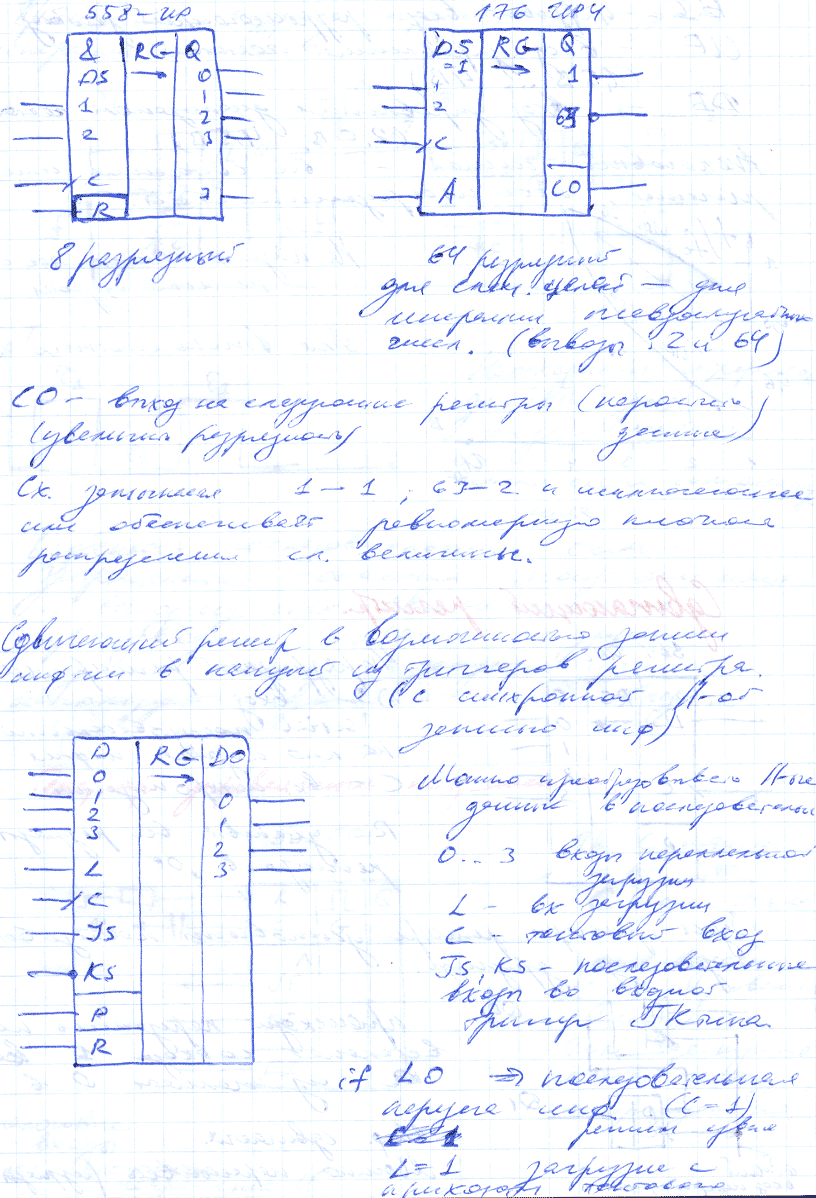 558-ИР
& RG Q
DS → 0
1 1
2 2
3
C 7
R
8 разрядный
176 ИР4
DS RG Q
=1 → 1
1
2
C
A CO
64 разрядный
для спец. целей — для
чисел. (выводы : 2 и 64)
CO - выход на следующие регистры (нарастить
(увеличить разрядность) данные)
Сх. 1 – 1 ; 63 – 2 и исключающее
или обеспечивает равномерную
распределения сл. величины.
Сдвигающий регистр с возможностью записи
инф-ии в каждый из триггеров регистра.
(с синхронной ||-ой
записью инф)
D RG DO
0 →
1 0
2 1
3 2
L 3
C
JS
KS
P
R
Можно преобразовывать ||-ые
данные в последовательные
0...3 входы параллельной
загрузки
L - вх загрузки
C - тактовый вход
JS, KS - последовательные
входы во входной
триггер JK типа.
if L0 ⇒ последовательная
инф (C=1)
режим сдвига
L=1 загрузка с
приходом тактового